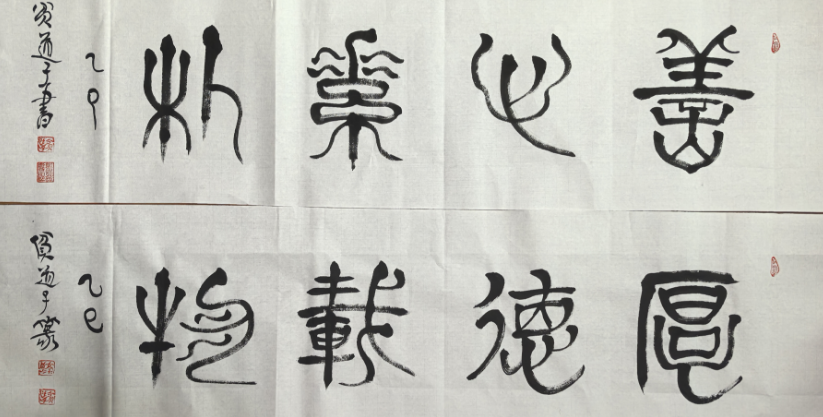 善心素朴
乙巳
貧道子書
厚德載物
乙巳
貧道子篆